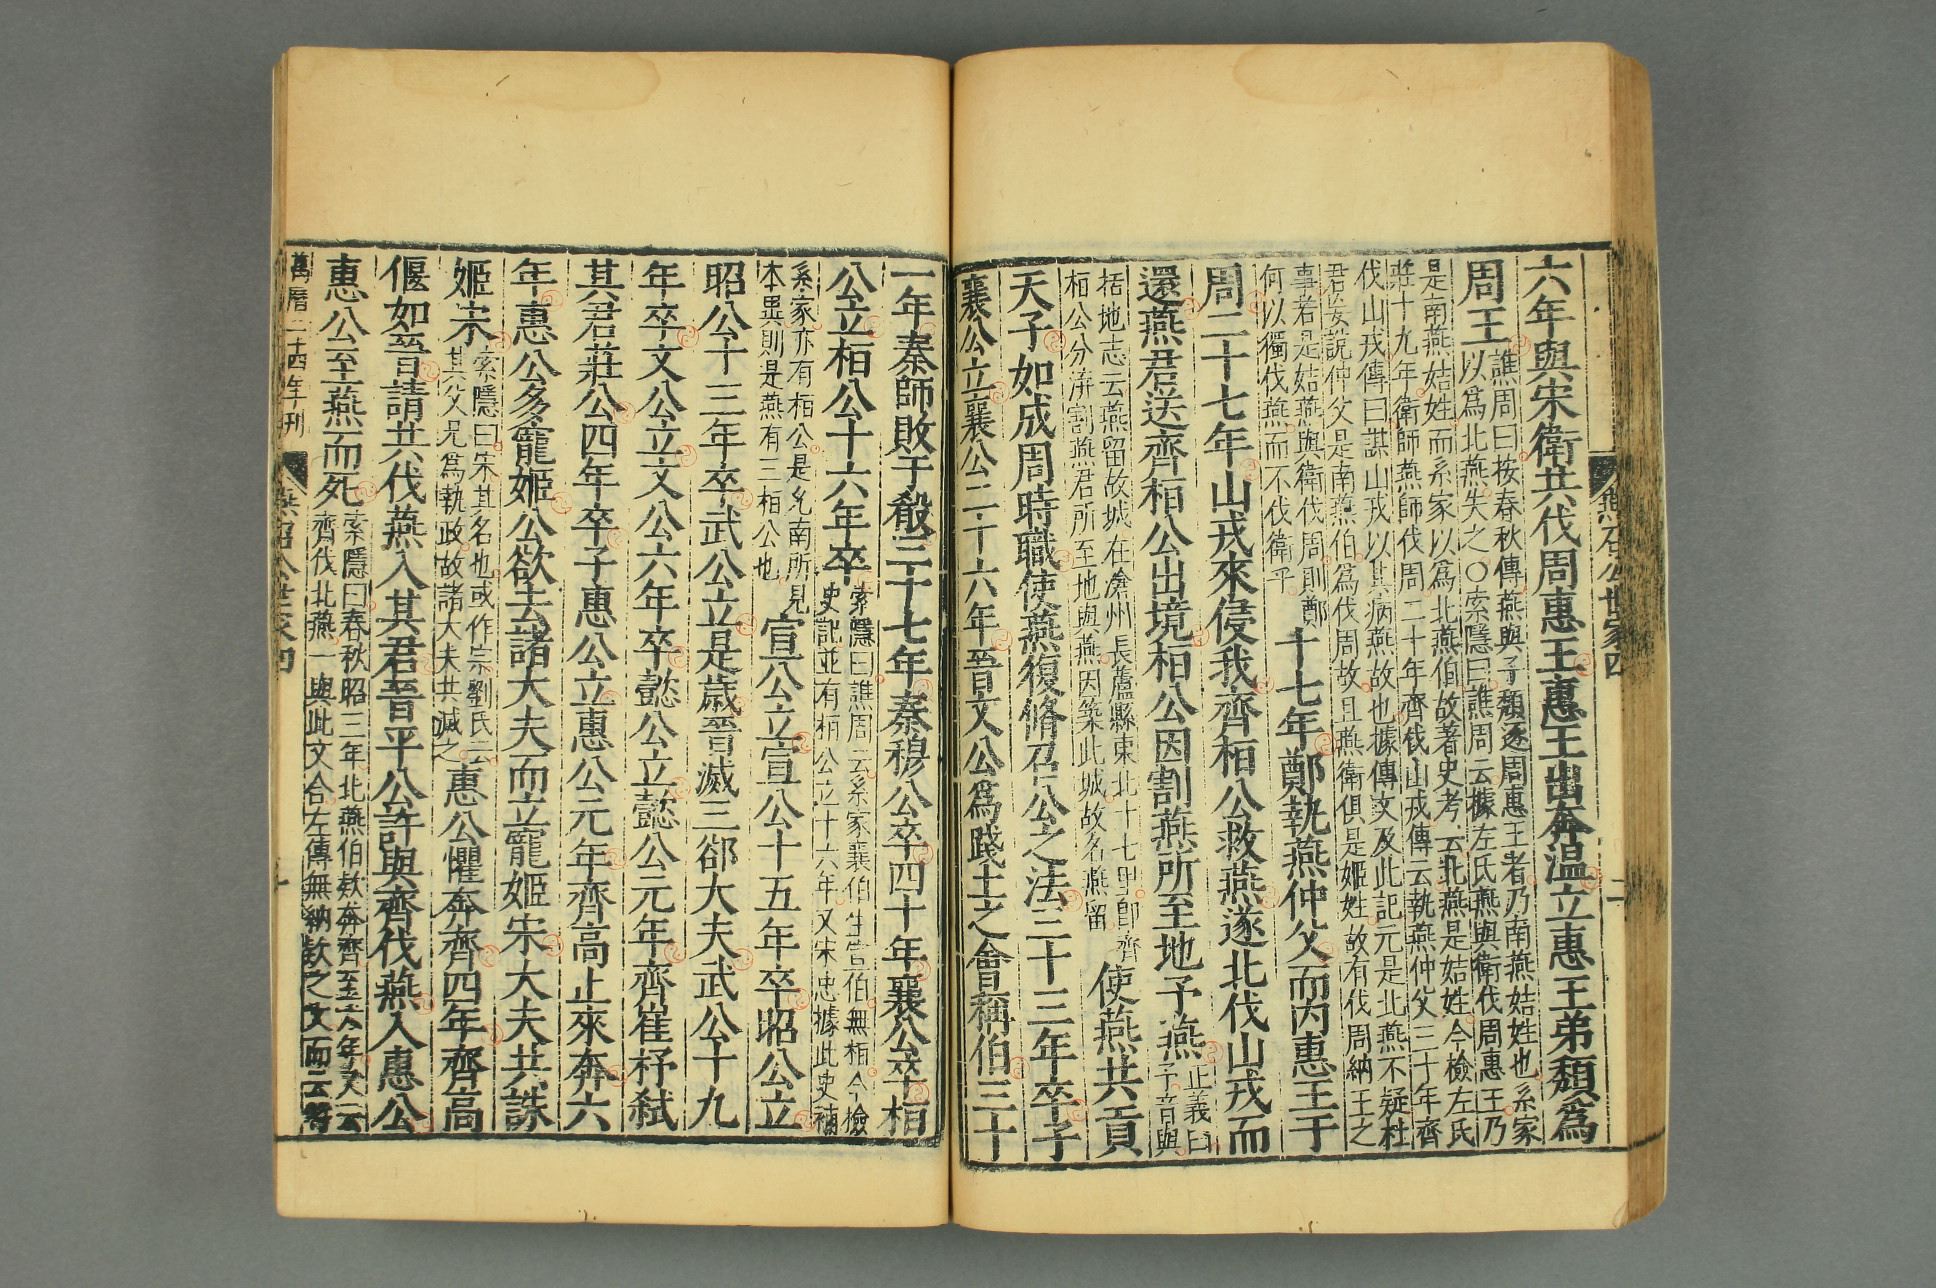 燕召公世家四
二
六年與宋衛共伐周惠王惠王出奔溫立惠王弟頹爲
周王
譙周曰按春秋傳燕與子頹逐周惠王者乃南燕姞姓也系家
以爲北燕失之〇索隱曰譙周云據左氏燕與衛伐周惠王乃
是南燕姞姓而系家以爲北燕伯故著史考云北燕是姞姓今檢左氏
莊十九年衛師燕師伐周二十年齊伐山戎傳云執燕仲父三十年齊
伐山戎傳曰謀山戎以其病燕故也據傳文及此記元是北燕不疑杜
君妄說仲父是南燕伯爲伐周故且燕衛俱是姬姓故有伐周納王之
事者是姞燕與衛伐周則鄭
何以獨伐燕而不伐衛乎
十七年鄭執燕仲父而内惠王于
周二十七年山戎來侵我齊桓公救燕遂北伐山戎而
還燕君送齊桓公出境桓公因割燕所至地予燕
正義曰
予音與
括地志云燕留故城在滄州長蘆縣東北十七里即齊
桓公分溝割燕君所至地與燕因築此城故名燕留
使燕共貢
天子如成周時職使燕復脩召公之法三十三年卒子
襄公立襄公二十六年晉文公爲踐土之會稱伯三十
一年秦師敗于殽三十七年秦穆公卒四十年襄公卒桓
公立桓公十六年卒
索隱曰譙周云系家襄伯生宣伯無桓今檢
史記並有桓公立十六年又宋忠據此史補
系家亦有桓公是允南所見
本異則是燕有三桓公也
宣公立宣公十五年卒昭公立
昭公十三年卒武公立是歲晉滅三郤大夫武公十九
年卒文公立文公六年卒懿公立懿公元年齊崔杼弒
其君莊公四年卒子惠公立惠公元年齊高止來奔六
年惠公多寵姬公欲去諸大夫而立寵姬宋大夫共誅
姬宋
索隱曰宋其名也或作宗劉氏云
其父兄爲執政故諸大夫共滅之
惠公懼奔齊四年齊高
偃如晉請共伐燕入其君晉平公許與齊伐燕入惠公
惠公至燕而死
索隱曰春秋昭三年北燕伯欵奔齊至六年又云
齊伐北燕一與此文合左傳無納欵之文而云將
萬曆二十四年刊
燕召公世家四